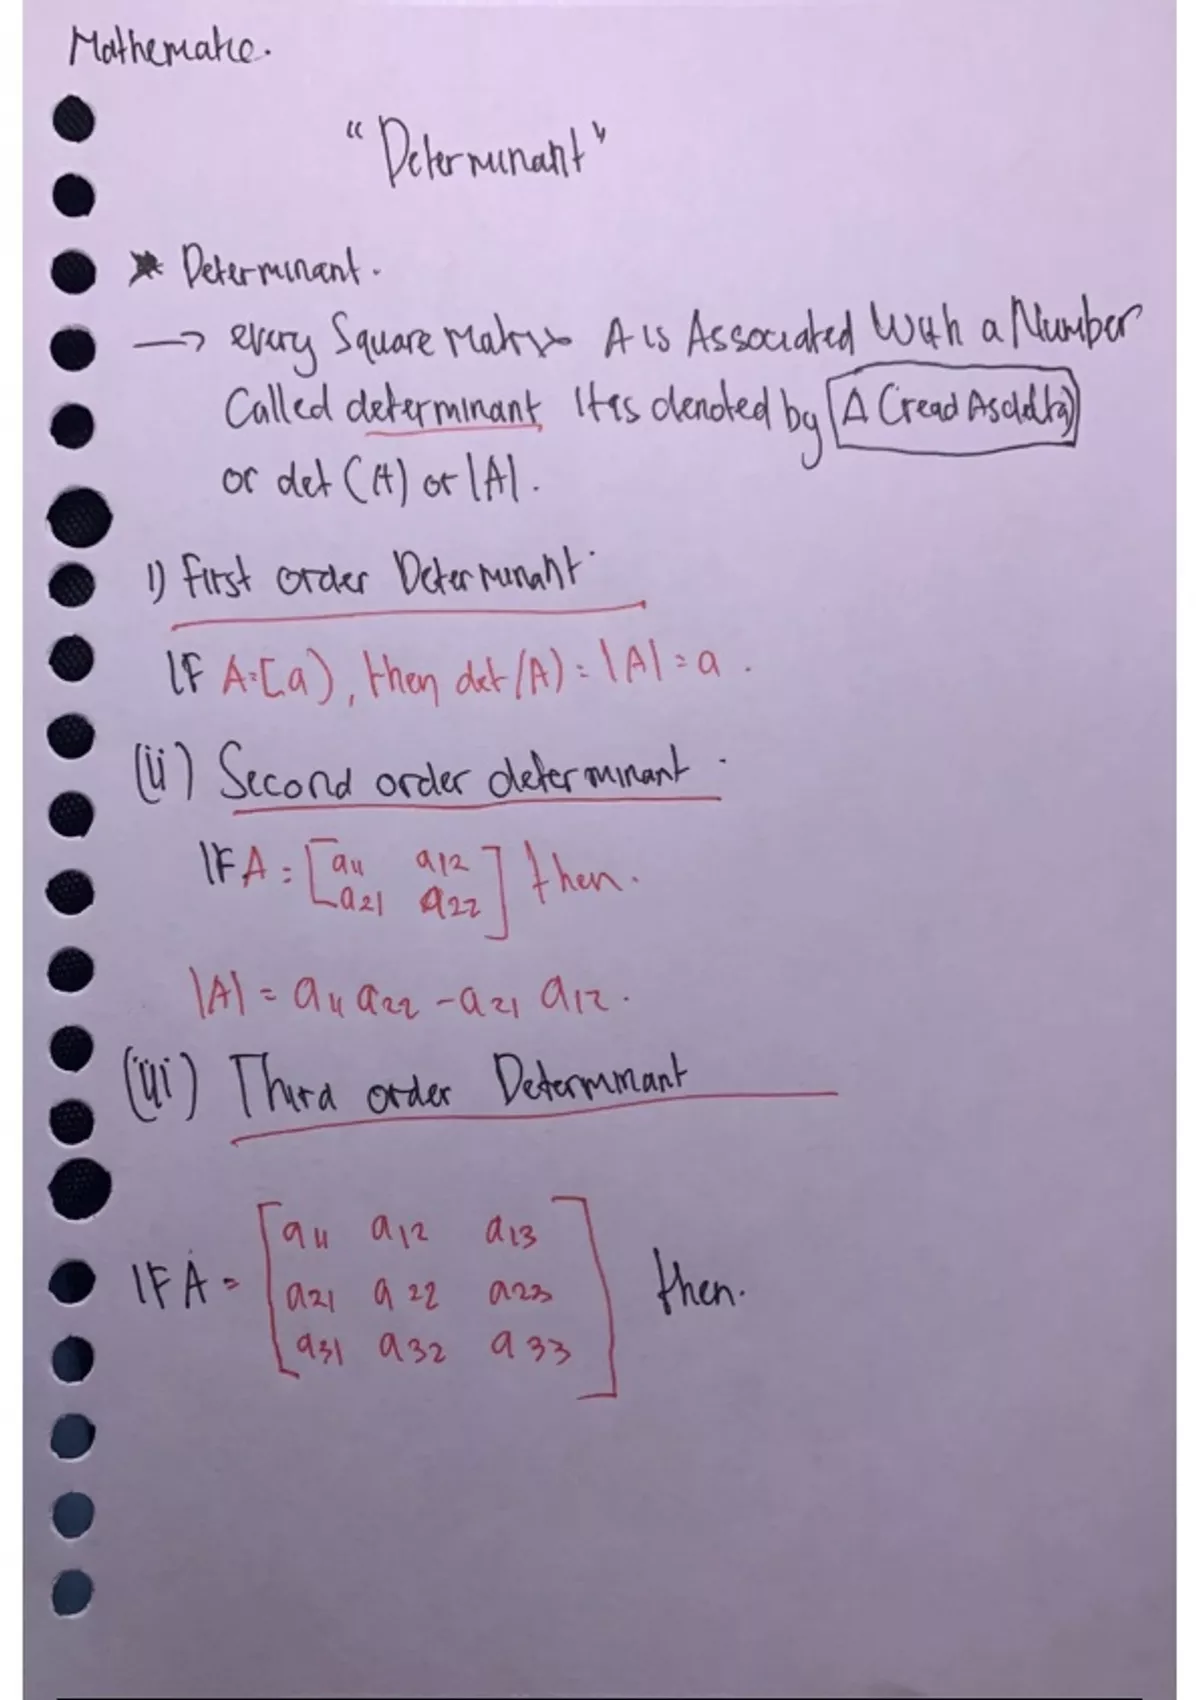 Mathematic.
"Determinant"
* Determinant.
→ every Square Matrix A is Associated With a Number
Called determinant It is denoted by Δ (read As delta)
or det (A) or |A|.
i) First order Determinant.
IF A=[a), then det (A) = |A| = a.
(ii) Second order determinant.
IF A = [a11 a12
a21 a22] then.
|A| = a11 a22 - a21 a12.
(iii) Third order Determinant
a11 a12 a13
IF A = [a21 a22 a23] then.
a31 a32 a33